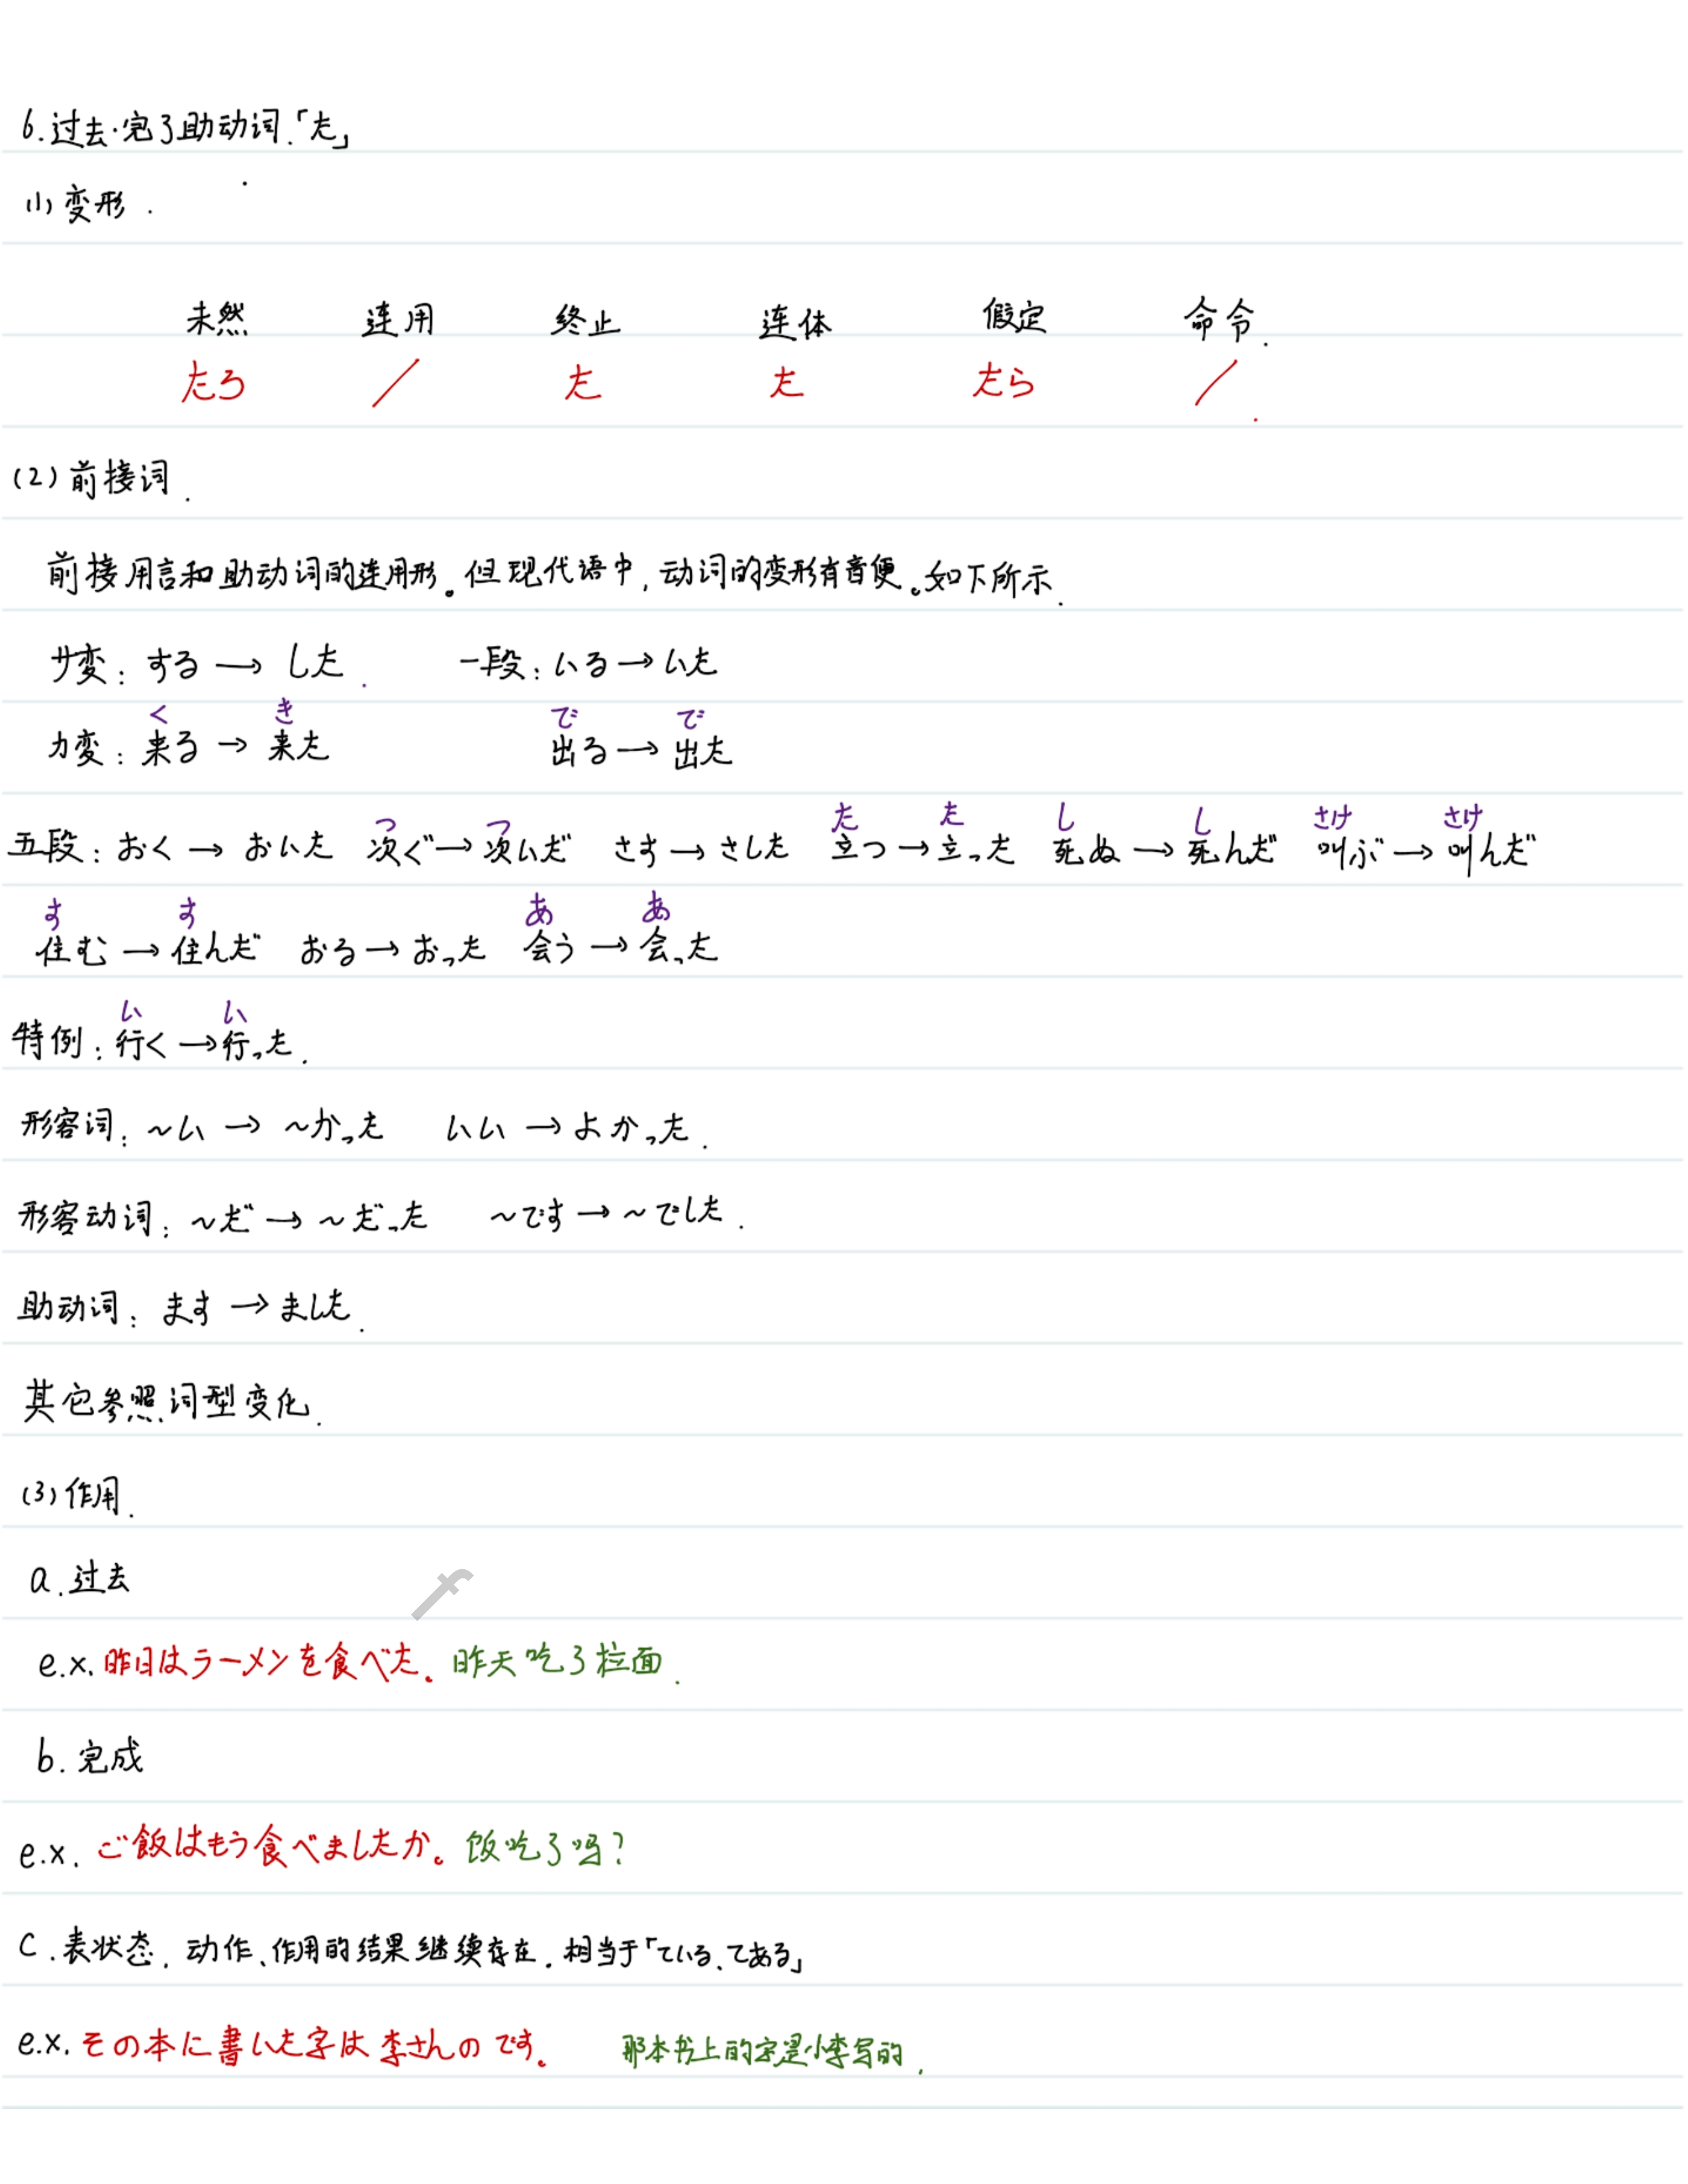 6.过去·完了助动词.「た」
(1)变形.
未然 连用 终止 连体 假定 命令.
たろ / た た たら /
(2)前接词.
前接用言和助动词的连用形。但现代语中,动词的变形有音便。如下所示.
サ変:する→した. 一段:いる→いた
く き で で
カ変:来る→来た 出る→出た
つ つ た た し し さけ さけ
五段:おく→おいた 次ぐ→次いだ さす→さした 立つ→立った 死ぬ→死んだ 叫ぶ→叫んだ
す す あ あ
住む→住んだ おる→おった 会う→会った
い い
特例:行く→行った.
形容词:~い→~かった いい→よかった.
形容动词:~だ→~だった ~です→~でした.
助动词:ます→ました.
其它参照词型变化.
(3)作用.
a.过去
e.x.昨日はラーメンを食べた。昨天吃了拉面.
b.完成
e.x.ご飯はもう食べましたか。饭吃了吗?
C.表状态.动作、作用的结果继续存在.相当于「ている、てある」
e.x.その本に書いた字は李さんのです。 那本书上的字是小李写的.